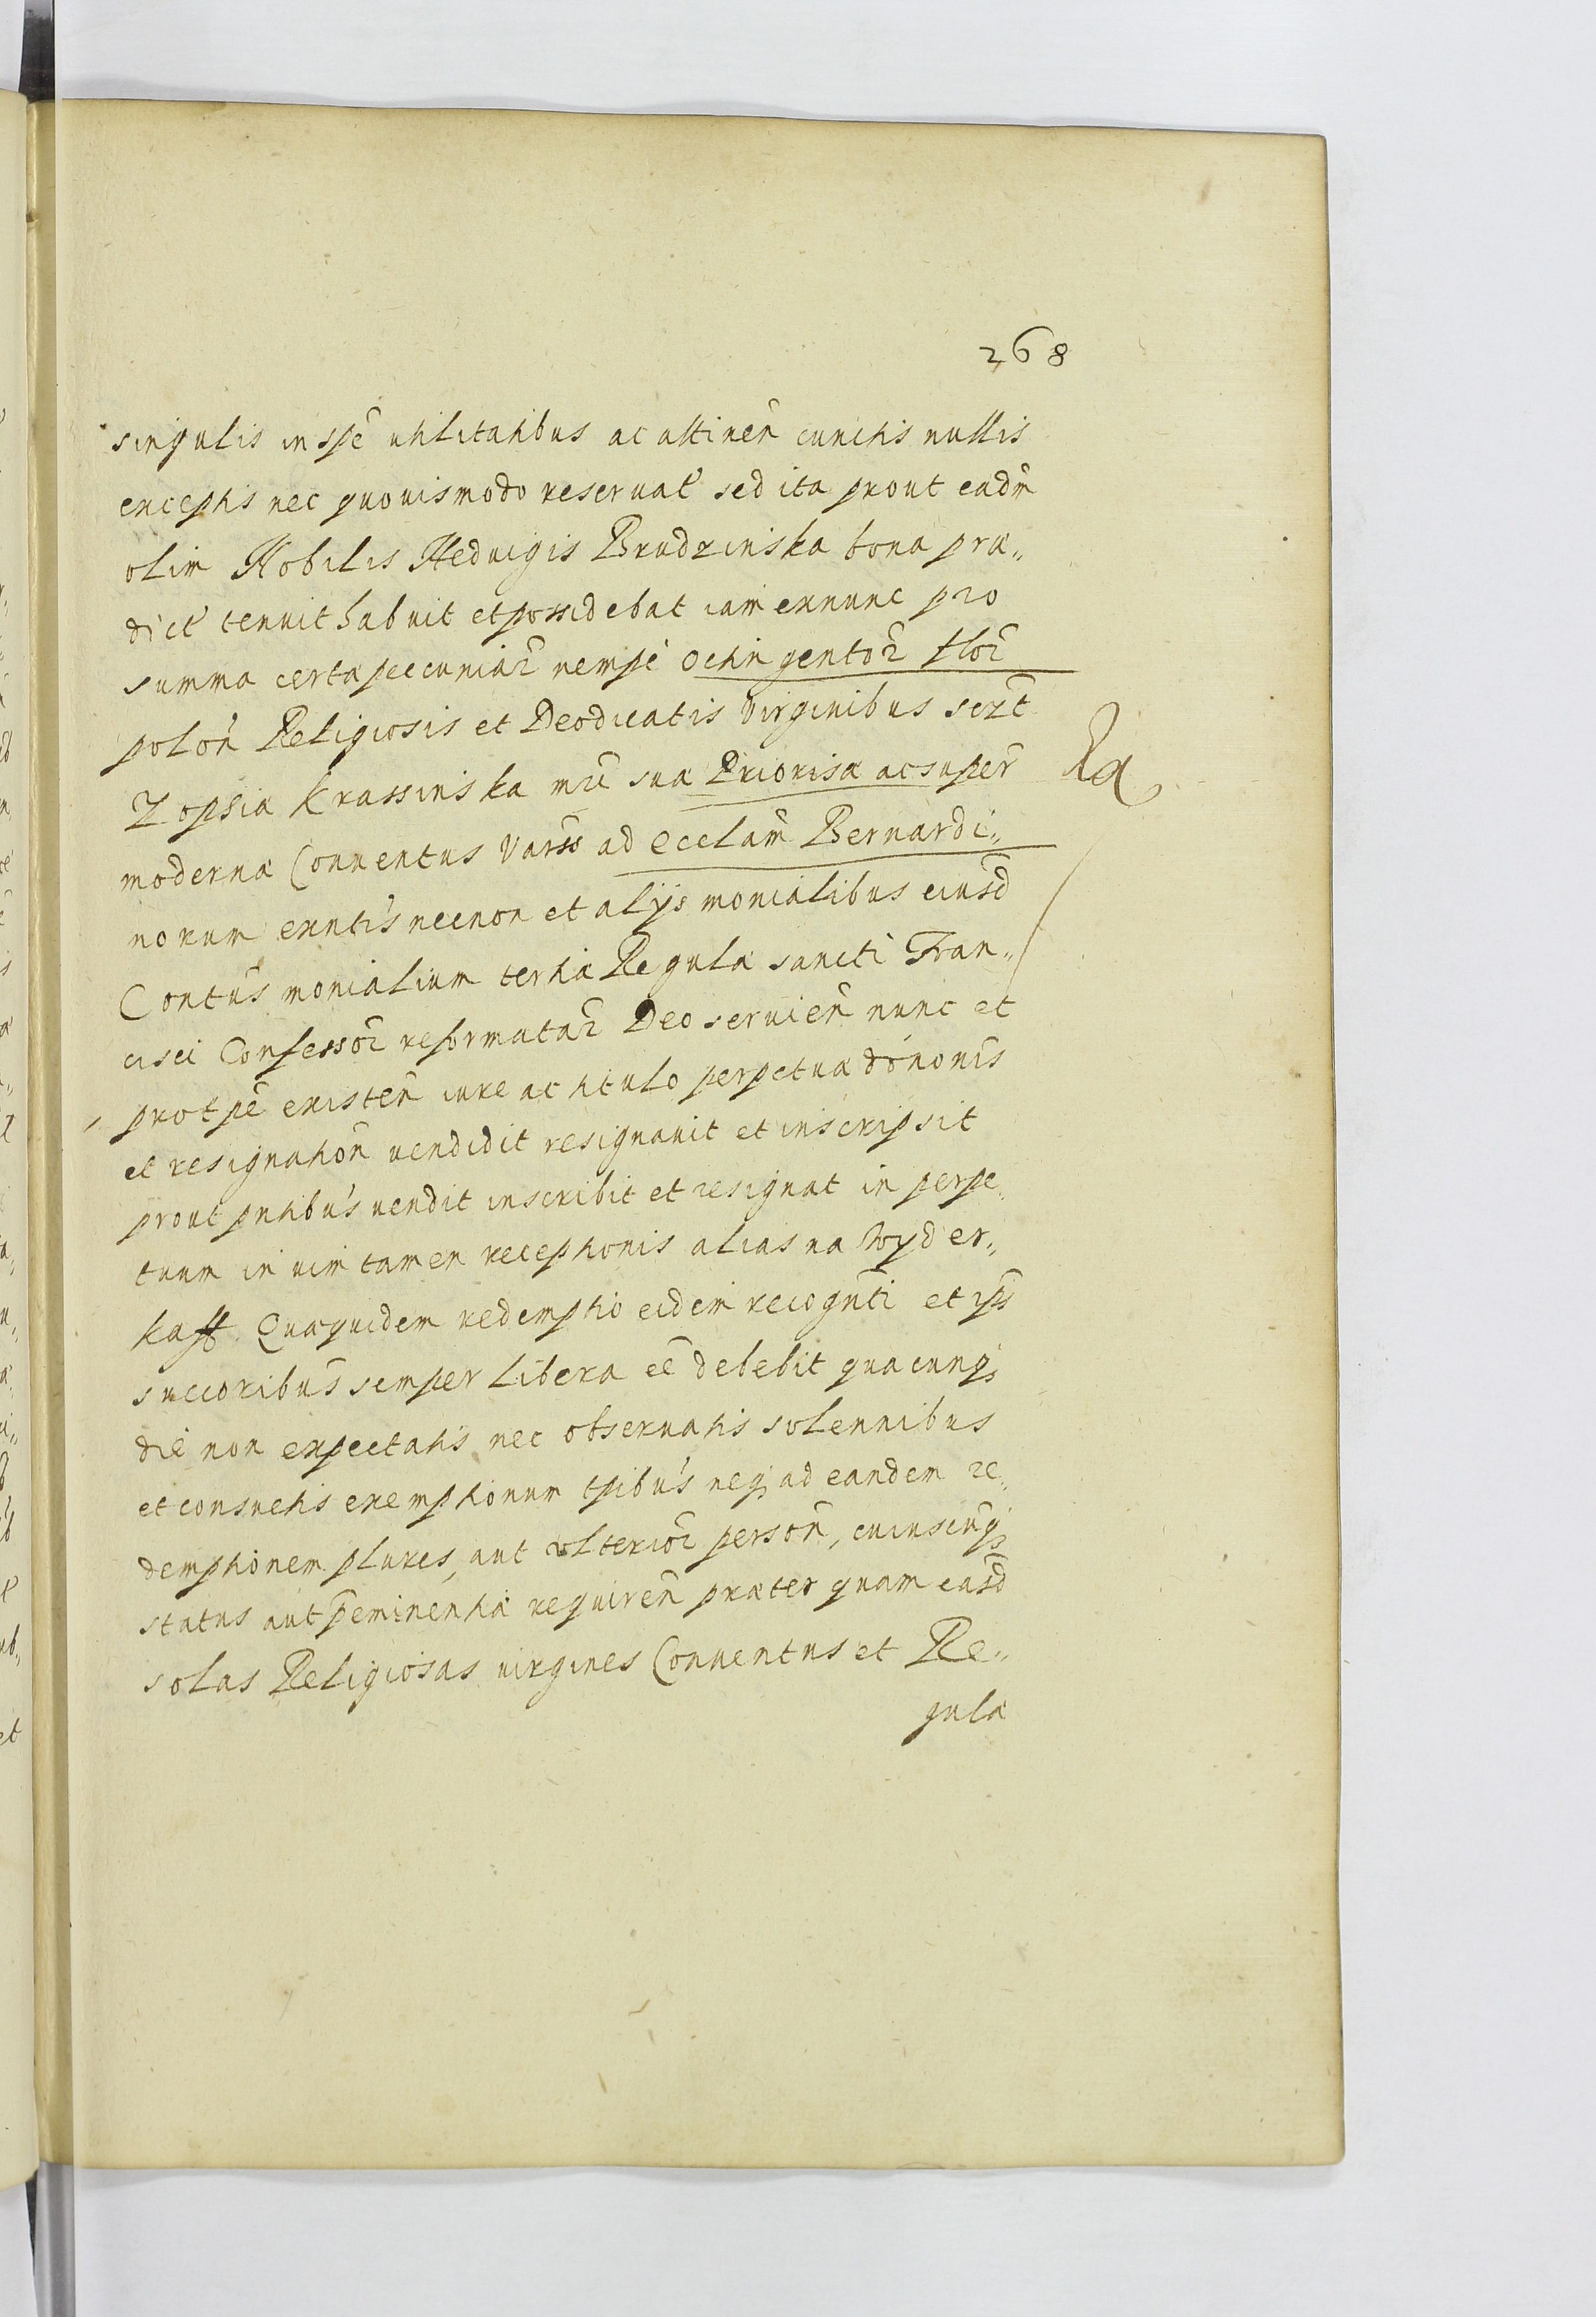 268
singulis in spē utilitatibus ac attinen̄ cunctis nullis
exceptis nec quovismodo reservat̄ sed ita prout eadm̄
olim Nobilis Hedvigis Brudzinska bona præ„
dict̄ tenuit habuit et possidebat iam exnunc pro
summa certa pecuniar̄ nempe octingentor̄ flor̄
polon̄ Religiosis et Deodicatis Virginibus sczt̄
Zophia Krassinska mr̄i suæ Priorisæ ac super
moderna Conventus Vars̄s ad ecclam̄ Bernardi„
norum exn̄tis necnon et alijs monialibus eiusd̄
Contus̄ monialium tertiæ Regulæ sancti Fran„
cisci Confessor̄ reformatar̄ Deo servien̄ nunc et
pro tpē existen̄ iure ac titulo perpetuæ dōnonis
et resignation̄ vendidit resignavit et inscripsit
prout pn̄tibus vendit inscribit et resignat in perpe„
tuum in vim tamen receptionis alias na Wyder„
kaff. Quæquidem redemptio eidem recogn̄ti et ips̄
succoribus̄ semper libera eē debebit quacunq̨
die non expectatis nec observatis solennibus
et consuetis exemptionum tp̄ibus neq̨ ad eandem re„
demptionem plures, aut ulterior̄ person̄, cuiuscunq̨
status aut p̄eminentiæ requiren̄ præter quam easd̄
solas Religiosas virgines Conventus et Re„
gulæ